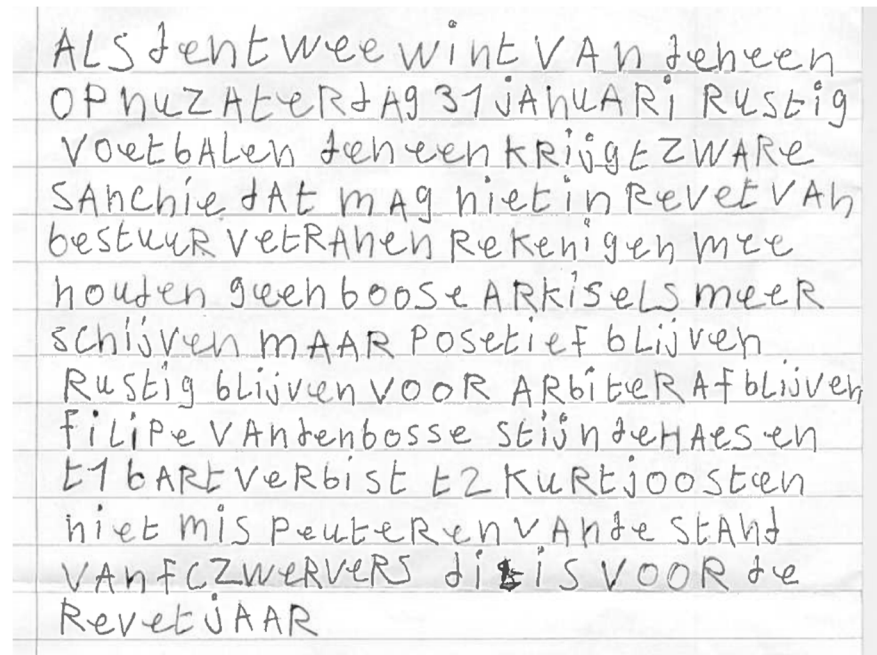 ALS dentwee wint VAn deneen
OP nu ZAteRdAg 31 jAnuARi RUStig
VoetbALen deneen KRijgt ZWARe
SAnchie dAt mAg niet in RevetVAn
bestuuR VetRAnen Rekenigen mee
houden geen boose ARKiseLS meeR
Schijven mAAR Posetief bLijven
RuStig bLijven VOOR ARbiteR Af bLijven
FiLiPe VAndenbosse Stijn deHAes en
t1 bARt VeRbist t2 KuRt joosten
niet mis PeuteRen VAn de StAnd
VAn FC ZWeRVeRS dit is VOOR de
RevetjAAR